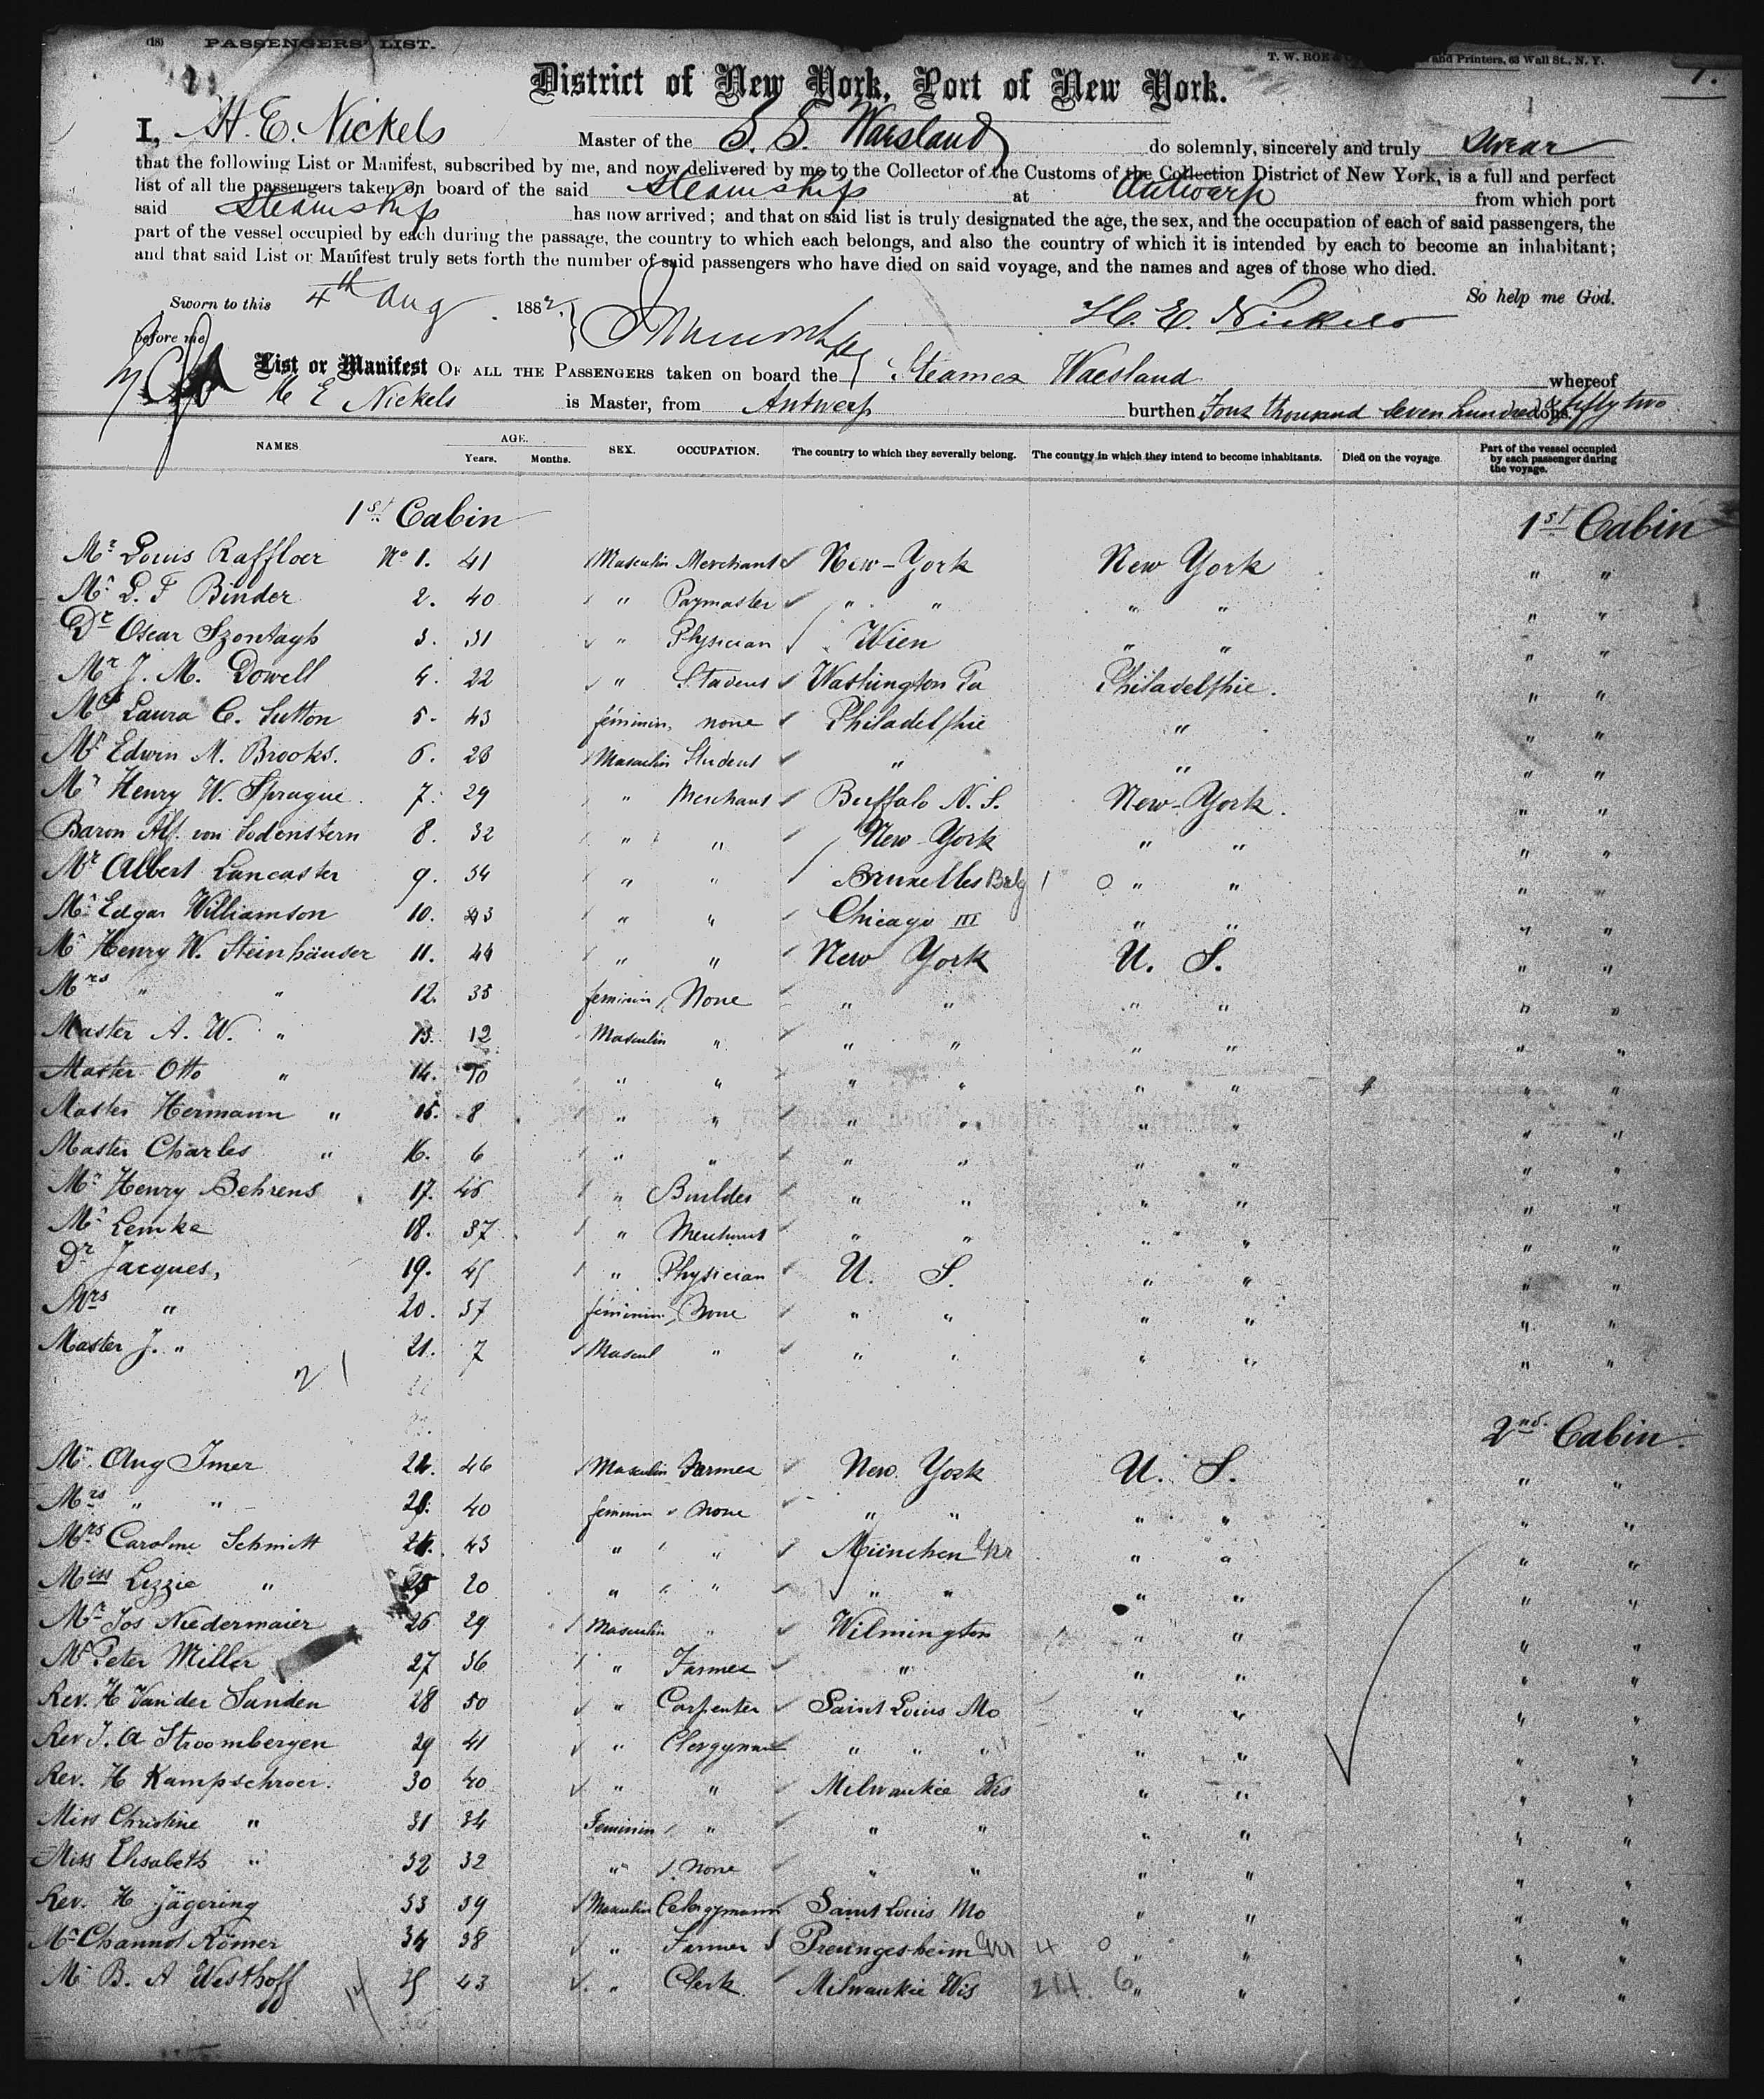 (18) PASSENGERS' LIST.
T. W. ROE and Printers, 63 Wall St., N. Y.
1.
District of New York, Port of New York.
I, H. E. Nickels Master of the S. S. Waesland do solemnly, sincerely and truly swear
that the following List or Manifest, subscribed by me, and now delivered by me to the Collector of the Customs of the Collection District of New York, is a full and perfect
list of all the passengers taken on board of the said Steamship at Antwerp from which port
said Steamship has now arrived; and that on said list is truly designated the age, the sex, and the occupation of each of said passengers, the
part of the vessel occupied by each during the passage, the country to which each belongs, and also the country of which it is intended by each to become an inhabitant;
and that said List or Manifest truly sets forth the number of said passengers who have died on said voyage, and the names and ages of those who died.
So help me God.
Sworn to this 4th Aug 1882 H. E. Nickels
before me
List or Manifest OF ALL THE PASSENGERS taken on board the Steamer Waesland whereof
H E Nickels is Master, from Antwerp burthen Four thousand seven hundred & fifty two tons.
NAMES. AGE. Years. Months. SEX. OCCUPATION. The country to which they severally belong. The country in which they intend to become inhabitants. Died on the voyage. Part of the vessel occupied by each passenger during the voyage.
1st Cabin 1st Cabin
Mr Louis Raffloer No 1. 41 Masculin Merchant New-York New York " "
Mr L. F Binder 2. 40 " Paymaster " " " " " "
Dr Oscar Szontagh 3. 31 " Physician Wien " " " "
Mr J. M. Dowell 4. 22 " Student Washington Pa Philadelphie. " "
Mrs Laura C. Sutton 5. 43 feminin none Philadelphie " " "
Mr Edwin M. Brooks. 6. 28 Masculin Student " " " "
Mr Henry W. Sprague. 7. 29 " Merchant Buffalo N. S. New-York. " "
Baron Alf. von Sodenstern 8. 32 " " New York " " " "
Mr Albert Lancaster 9. 34 " " Bruxelles Belg 1 0 " " " "
Mr Edgar Williamson 10. 43 " " Chicago Ill " " " "
Mr Henry W. Steinhäuser 11. 44 " " New York U. S. " "
Mrs " " 12. 35 feminin None " " " " " "
Master A. W. " 13. 12 Masculin " " " " " " "
Master Otto " 14. 10 " " " " " " " "
Master Hermann " 15. 8 " " " " " " " "
Master Charles " 16. 6 " " " " " " " "
Mr Henry Behrens 17. 46 " Builder " " " " " "
Mr Lemke 18. 37 " Merchant " " " " " "
Dr Jacques, 19. 45 " Physician U. S. " " " "
Mrs " 20. 37 feminin None " " " " " "
Master J. " 21. 7 Mascul " " " " " " "
21
2nd Cabin.
Mr. Aug Imer 22. 46 Masculin Farmer New York U. S. " "
Mrs " " 23. 40 feminin None " " " " " "
Mrs Caroline Schmitt 24. 43 " " München Ger " " " "
Miss Lizzie " 25 20 " " " " " " " "
Mr Jos Niedermaier 26 29 Masculin " Wilmington " " " "
Mr Peter Miller 27 36 " Farmer " " " " "
Rev. H Van der Sanden 28 50 " Carpenter Saint Louis Mo " " " "
Rev J. A Stroombergen 29 41 " Clergyman " " " " " " "
Rev. H Kampschroer. 30 40 " " Milwaukie Wis " " " "
Miss Christine " 31 34 Feminin " " " " " " "
Miss Elisabeth " 32 32 " None " " " " " "
Rev. H Jägering 33 39 Masculin Clergymann Saint Louis Mo " " " "
Mr Channot Römer 34 38 " Farmer Preungesheim Ger 4 0 " " " "
Mr B. A Westhoff 35 43 " Clerk Milwaukie Wis 214. 6 " " " "
14